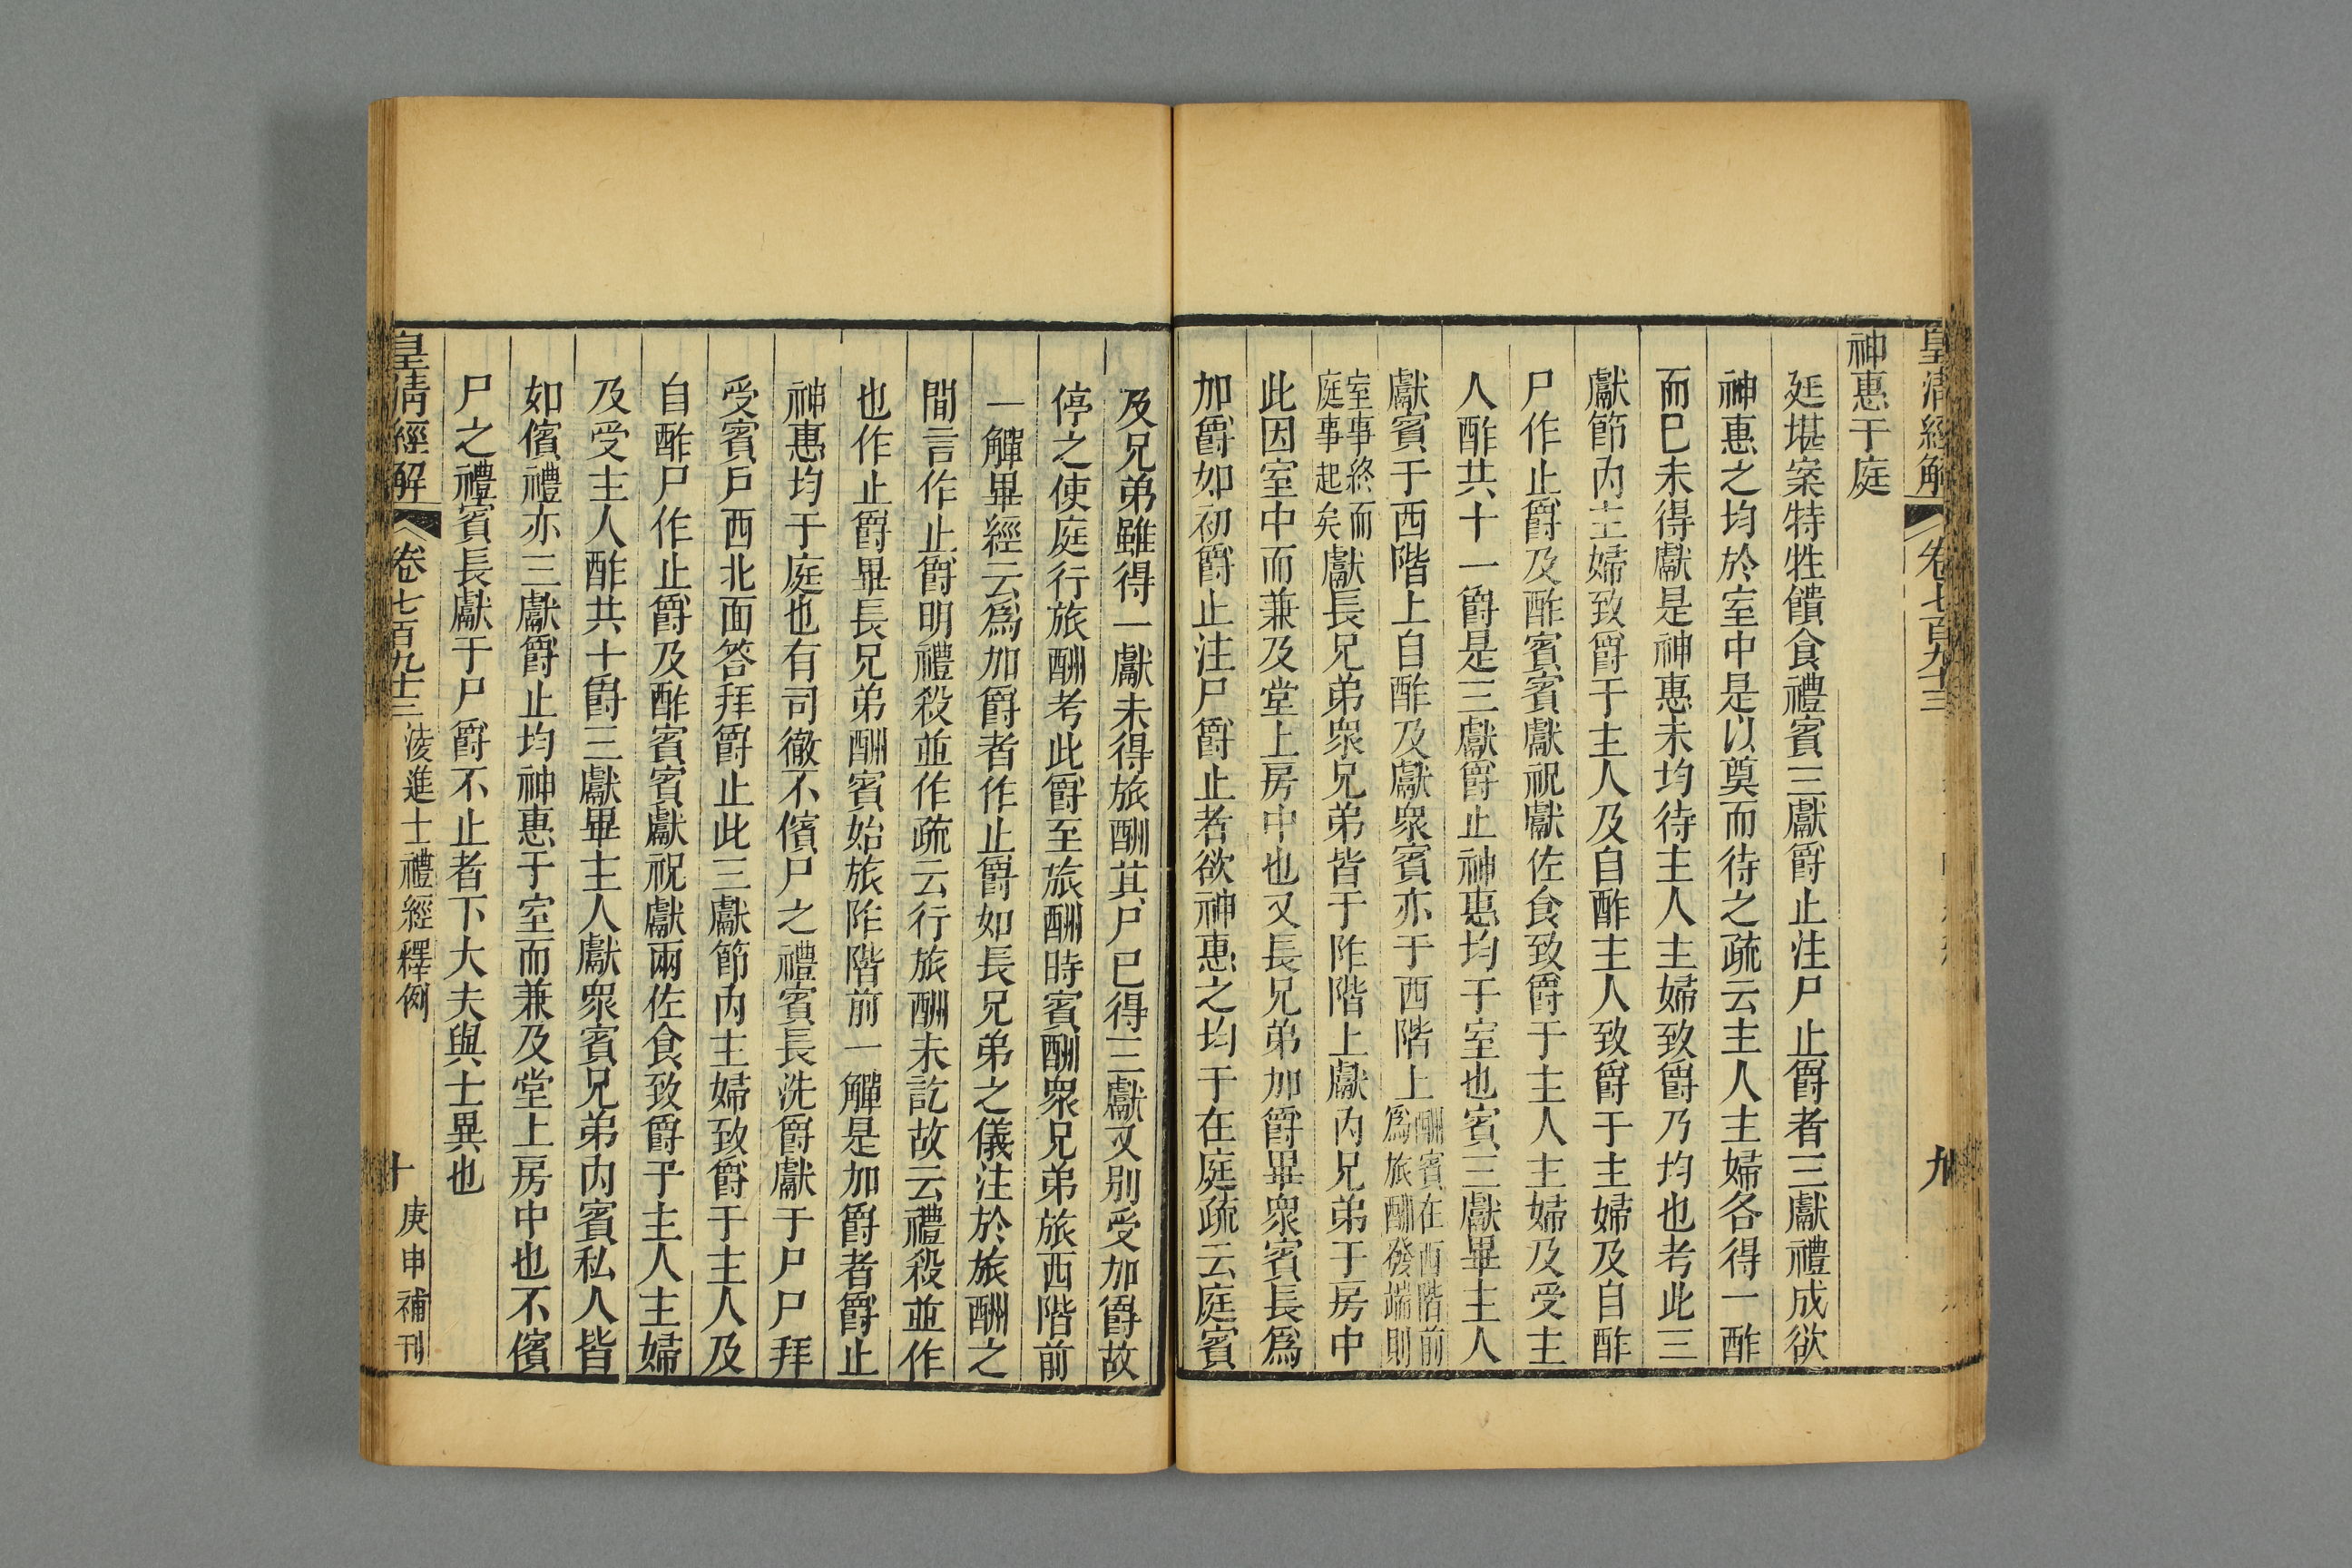 皇清經解 卷七百九十三 九
神惠于庭
廷堪案特牲饋食禮賓三獻爵止注尸止爵者三獻禮成欲
神惠之均於室中是以奠而待之疏云主人主婦各得一酢
而巳未得獻是神惠未均待主人主婦致爵乃均也考此三
獻節內主婦致爵于主人及自酢主人致爵于主婦及自酢
尸作止爵及酢賓賓獻祝獻佐食致爵于主人主婦及受主
人酢共十一爵是三獻爵止神惠均于室也賓三獻畢主人
獻賓于西階上自酢及獻衆賓亦于西階上酬賓在西階前爲旅酬發端則
室事終而庭事起矣獻長兄弟衆兄弟皆于阼階上獻內兄弟于房中
此因室中而兼及堂上房中也又長兄弟加爵畢衆賓長爲
加爵如初爵止注尸爵止者欲神惠之均于在庭疏云庭賓
及兄弟雖得一獻未得旅酬其尸巳得三獻又別受加爵故
停之使庭行旅酬考此爵至旅酬時賓酬衆兄弟旅西階前
一觶畢經云爲加爵者作止爵如長兄弟之儀注於旅酬之
閒言作止爵明禮殺並作疏云行旅酬未訖故云禮殺並作
也作止爵畢長兄弟酬賓始旅阼階前一觶是加爵者爵止
神惠均于庭也有司徹不儐尸之禮賓長洗爵獻于尸尸拜
受賓戶西北面答拜爵止此三獻節內主婦致爵于主人及
自酢尸作止爵及酢賓賓獻祝獻兩佐食致爵于主人主婦
及受主人酢共十爵三獻畢主人獻衆賓兄弟內賓私人皆
如儐禮亦三獻爵止均神惠于室而兼及堂上房中也不儐
尸之禮賓長獻于尸爵不止者下大夫與士異也
皇清經解 卷七百九十三 淩進士禮經釋例 十 庚申補刊